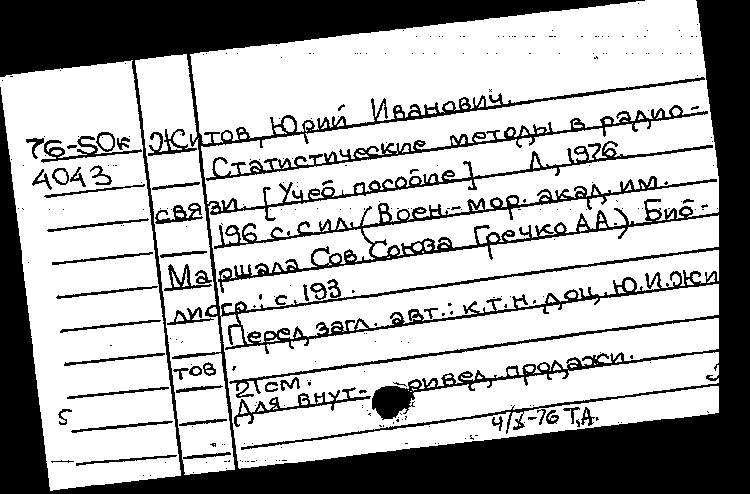 76-5Ок Житов, Юрий Иванович.
4043 Статистические методы в радио-
связи. [Учеб. пособие] Л., 1976.
196 с. с ил. (Воен.-мор. акад. им.
Маршала Сов. Союза Гречко А А.). Биб-
лиогр.: с. 193.
Перед загл. авт.: к.т.н. доц. Ю.И. Жи
тов.
21 см.
Для внут- ривед. продажи.
5
4/X-76 Т.Д.